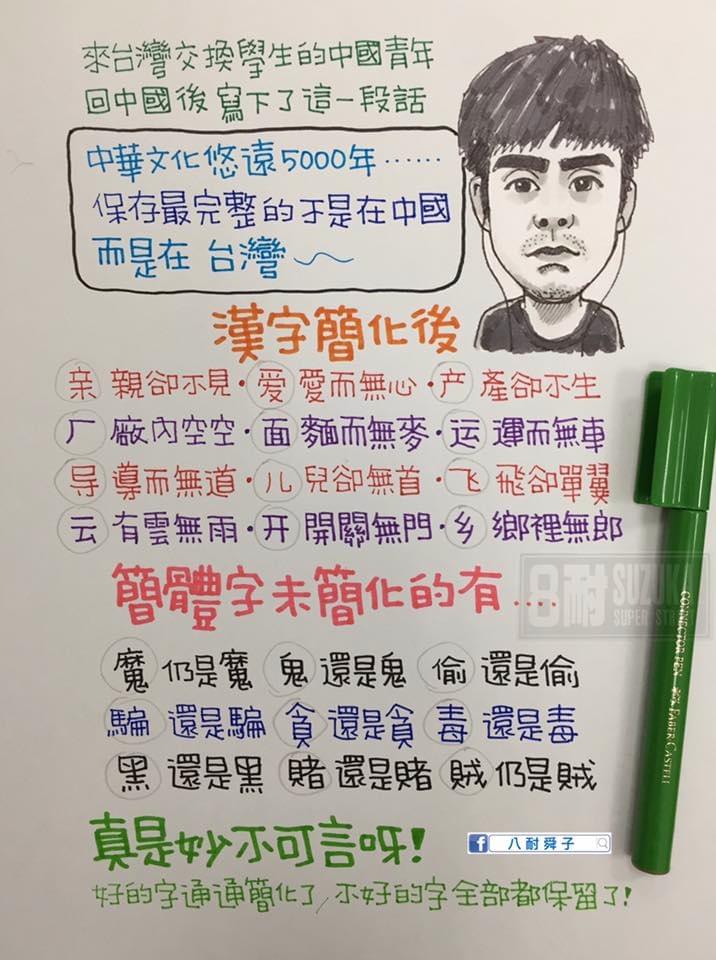 來台灣交換學生的中國青年
回中國後寫下了這一段話
中華文化悠遠5000年……
保存最完整的不是在中國
而是在 台灣~~
漢字簡化後
亲 親卻不見·爱 愛而無心·产 產卻不生
厂 廠內空空·面 麵而無麥·运 運而無車
导 導而無道·儿 兒卻無首·飞 飛卻單翼
云 有雲無雨·开 開關無門·乡 鄉裡無郎
簡體字未簡化的有....
魔 仍是魔 鬼 還是鬼 偷 還是偷
騙 還是騙 貪 還是貪 毒 還是毒
黑 還是黑 賭 還是賭 賊 仍是賊
真是妙不可言呀!
好的字通通簡化了,不好的字全部都保留了!
f 八耐舜子
8耐 SUZUKA
SUPER STREET
CONNECTOR PEN FABER CASTELL